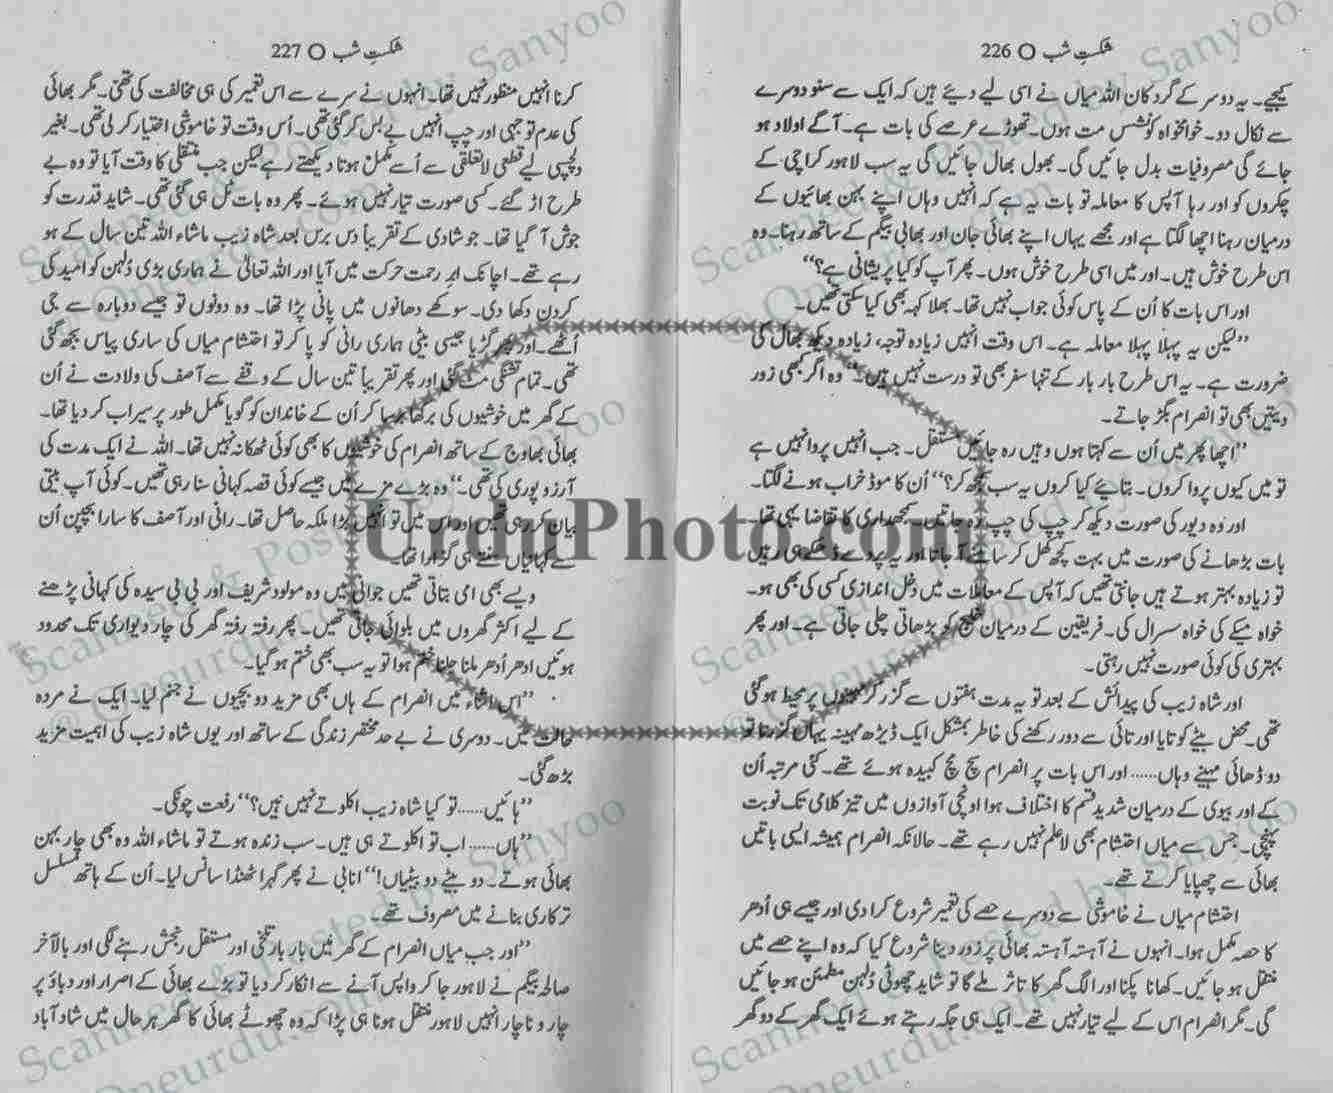 شکستِ شب ○ 226
کیجیے۔ یہ دو سر کے گرد کان اللہ میاں نے اسی لیے دیئے ہیں کہ ایک سے سنو دوسرے
سے نکال دو۔ خوامخواہ کونشس مت ہوں۔ تھوڑے عرصے کی بات ہے۔ آگے اولاد ہو
جائے گی مصروفیات بدل جائیں گی۔ بھول بھال جائیں گی یہ سب لاہور کراچی کے
چکروں کو اور رہا آپس کا معاملہ تو بات یہ ہے کہ انہیں وہاں اپنے بہن بھائیوں کے
درمیان رہنا اچھا لگتا ہے اور مجھے یہاں اپنے بھائی جان اور بھابی بیگم کے ساتھ رہنا۔ وہ
اس طرح خوش ہیں۔ اور میں اسی طرح خوش ہوں۔ پھر آپ کو کیا پریشانی ہے؟‘‘
اور اس بات کا اُن کے پاس کوئی جواب نہیں تھا۔ بھلا کہہ بھی کیا سکتی تھیں۔
’’لیکن یہ پہلا پہلا معاملہ ہے۔ اس وقت انہیں زیادہ توجہ، زیادہ دیکھ بھال کی
ضرورت ہے۔ یہ اس طرح بار بار کے تنہا سفر بھی تو درست نہیں ہیں۔‘‘ وہ اگر کبھی زور
دیتیں بھی تو انصرام بگڑ جاتے۔
’’اچھا پھر میں اُن سے کہتا ہوں وہیں رہ جائیں مستقل۔ جب انہیں پروا نہیں ہے
تو میں کیوں پروا کروں۔ بتایئے کیا کروں یہ سب کچھ کر؟‘‘ اُن کا موڈ خراب ہونے لگتا۔
اور وہ دیور کی صورت دیکھ کر چپ کی چپ رہ جاتیں۔ سمجھداری کا تقاضا یہی تھا۔
بات بڑھانے کی صورت میں بہت کچھ کھل کر سامنے آ جاتا اور یہ پردے ڈھکے ہی رہیں
تو زیادہ بہتر ہوتے ہیں جانتی تھیں کہ آپس کے معاملات میں دخل اندازی کسی کی بھی ہو۔
خواہ میکے کی خواہ سسرال کی۔ فریقین کے درمیان خلیج کو بڑھاتی چلی جاتی ہے۔ اور پھر
بہتری کی کوئی صورت نہیں رہتی۔
اور شاہ زیب کی پیدائش کے بعد تو یہ مدت ہفتوں سے گزر کر مہینوں پر محیط ہو گئی
تھی۔ محض بیٹے کو تایا اور تائی سے دور رکھنے کی خاطر بمشکل ایک ڈیڑھ مہینہ یہاں گزرتا تو
دو ڈھائی مہینے وہاں...... اور اس بات پر انصرام سچ مچ کبیدہ ہوئے تھے۔ کئی مرتبہ اُن
کے اور بیوی کے درمیان شدید قسم کا اختلاف ہوا اونچی آوازوں میں تیز کلامی تک نوبت
پہنچی۔ جس سے میاں احتشام بھی لاعلم نہیں رہے تھے۔ حالانکہ انصرام ہمیشہ ایسی باتیں
بھائی سے چھپایا کرتے تھے۔
احتشام میاں نے خاموشی سے دوسرے حصے کی تعمیر شروع کرا دی اور جیسے ہی اُدھر
کا حصہ مکمل ہوا۔ انہوں نے آہستہ آہستہ بھائی پر زور دینا شروع کیا کہ وہ اپنے حصے میں
منتقل ہو جائیں۔ کھانا پکنا اور الگ گھر کا تاثر ملے گا تو شاید چھوٹی دُلہن مطمئن ہو جائیں
گی۔ مگر انصرام اس کے لیے تیار نہیں تھے۔ ایک ہی جگہ رہتے ہوئے ایک گھر کے دو گھر
شکستِ شب ○ 227
کرنا انہیں منظور نہیں تھا۔ انہوں نے سرے سے اس تعمیر کی ہی مخالفت کی تھی۔ مگر بھائی
کی عدم توجہی اور چپ انہیں بے بس کر گئی تھی۔ اُس وقت تو خاموشی اختیار کر لی تھی۔ بغیر
دلچسپی لیے قطعی لاتعلقی سے اُسے مکمل ہوتا دیکھتے رہے لیکن جب منتقلی کا وقت آیا تو وہ بے
طرح اڑ گئے۔ کسی صورت تیار نہیں ہوئے۔ پھر وہ بات ٹل ہی گئی تھی۔ شاید قدرت کو
جوش آ گیا تھا۔ جو شادی کے تقریباً دس برس بعد شاہ زیب ماشاء اللہ تین سال کے ہو
رہے تھے۔ اچانک ابرِ رحمت حرکت میں آیا اور اللہ تعالیٰ نے ہماری بڑی دُلہن کو امید کی
کرن دکھا دی۔ سوکھے دھانوں میں پانی پڑا تھا۔ وہ دونوں تو جیسے دوبارہ سے جی
اُٹھے۔ اور پھر گڑیا جیسی بیٹی ہماری رانی کو پا کر تو احتشام میاں کی ساری پیاس بجھ گئی
تھی۔ تمام تشنگی مٹ گئی اور پھر تقریباً تین سال کے وقفے سے آصف کی ولادت نے اُن
کے گھر میں خوشیوں کی برکھا برسا کر اُن کے خاندان کو گویا مکمل طور پر سیراب کر دیا تھا۔
بھائی بھاوج کے ساتھ انصرام کی خوشیوں کا بھی کوئی ٹھکانہ نہیں تھا۔ اللہ نے ایک مدت کی
آرزو پوری کی تھی۔‘‘ وہ بڑے مزے میں جیسے کوئی قصہ کہانی سنا رہی تھیں۔ کوئی آپ بیتی
بیان کر رہی تھیں اور اس میں تو انہیں بڑا ملکہ حاصل تھا۔ رانی اور آصف کا سارا بچپن اُن
سے کہانیاں سنتے ہی گزرا تھا۔
ویسے بھی امی بتاتی تھیں جوانی میں وہ مولود شریف اور بی بی سیدہ کی کہانی پڑھنے
کے لیے اکثر گھروں میں بلوائی جاتی تھیں۔ پھر رفتہ رفتہ گھر کی چار دیواری تک محدود
ہوئیں ادھر اُدھر ملنا جلنا ختم ہوا تو یہ سب بھی ختم ہو گیا۔
’’اس اثناء میں انصرام کے ہاں بھی مزید دو بچیوں نے جنم لیا۔ ایک نے مردہ
حالت میں۔ دوسری نے بے حد مختصر زندگی کے ساتھ اور یوں شاہ زیب کی اہمیت مزید
بڑھ گئی۔
’’ہائیں...... تو کیا شاہ زیب اکلوتے نہیں ہیں؟‘‘ رفعت چونکی۔
’’ہاں...... اب تو اکلوتے ہی ہیں۔ سب زندہ ہوتے تو ماشاء اللہ وہ بھی چار بہن
بھائی ہوتے۔ دو بیٹے دو بیٹیاں!‘‘ انابی نے پھر گہرا ٹھنڈا سانس لیا۔ اُن کے ہاتھ مسلسل
ترکاری بنانے میں مصروف تھے۔
’’اور جب میاں انصرام کے گھر میں بار بار تلخی اور مستقل رنجش رہنے لگی اور بالآخر
صالحہ بیگم نے لاہور جا کر واپس آنے سے انکار کر دیا تو بڑے بھائی کے اصرار اور دباؤ پر
چار و ناچار انہیں لاہور منتقل ہونا ہی پڑا کہ وہ چھوٹے بھائی کا گھر ہر حال میں شاد آباد
UrduPhoto.com
Scanned & Posted by Sanyoo
@ Oneurdu.com